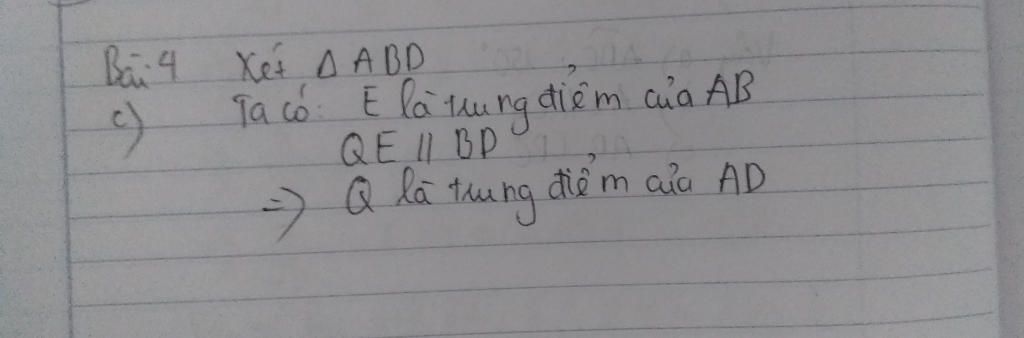 Bài 4 Xét Δ ABD
c) Ta có: E là trung điểm của AB
QE // BD
=> Q là trung điểm của AD